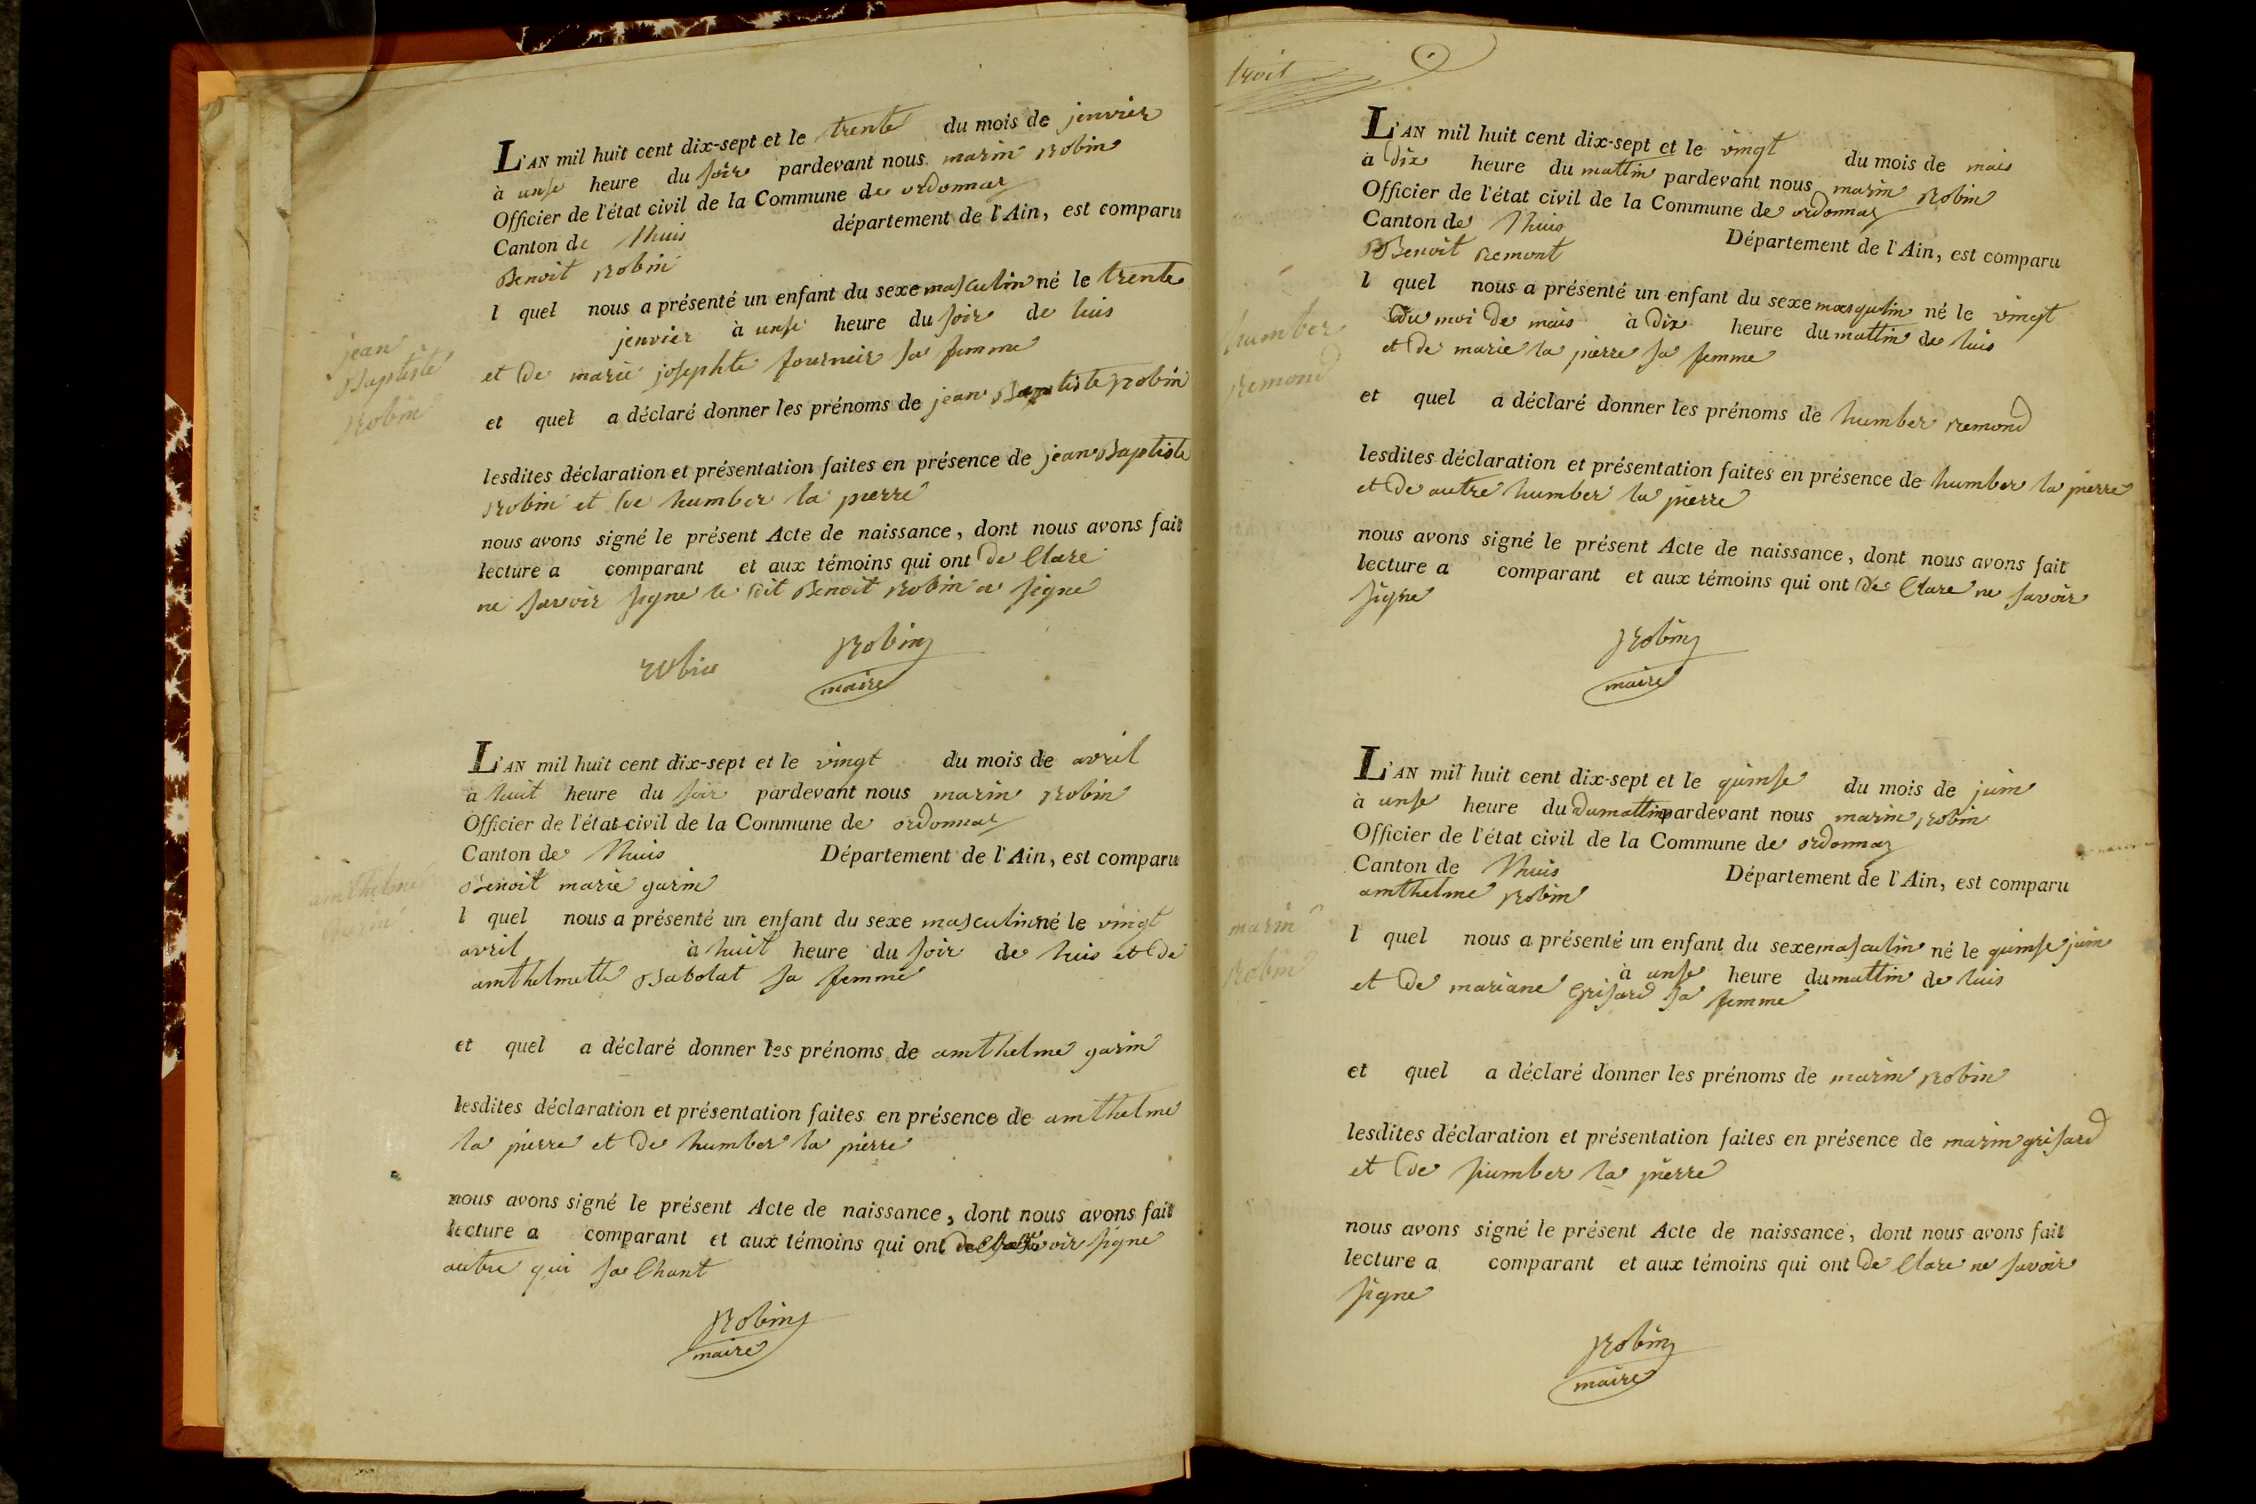 L'AN mil huit cent dix-sept et le trente du mois de jenvier
à unse heure du soir pardevant nous marin Robin
Officier de l'état civil de la Commune de ordonnaz
Canton de lhuis département de l'Ain, est comparu
Benoit Robin
l quel nous a présenté un enfant du sexe masculin né le trente
jenvier à unse heure du soir de luis
et de marie josephte fourneir sa femme
jean
Baptiste
Robin
et quel a déclaré donner les prénoms de jean Baptiste Robin
lesdites déclaration et présentation faites en présence de jean Baptiste
Robin et de humber la pierre
nous avons signé le présent Acte de naissance, dont nous avons fait
lecture a comparant et aux témoins qui ont de Clare
ne savoir signe le dit Benoit Robin a signe
robin Robin
maire
L'AN mil huit cent dix-sept et le vingt du mois de avril
à huit heure du soir pardevant nous marin Robin
Officier de l'état civil de la Commune de ordonnaz
Canton de lhuis Département de l'Ain, est comparu
Benoit marie garin
amthelme
garin
l quel nous a présenté un enfant du sexe masculin né le vingt
avril à huit heure du soir de luis et de
amthelmette Babolat sa femme
et quel a déclaré donner les prénoms de amthelme garin
lesdites déclaration et présentation faites en présence de amthelme
la pierre et de humber la pierre
nous avons signé le présent Acte de naissance, dont nous avons fait
lecture a comparant et aux témoins qui ont savoir signe
autre qui sa Chant
Robin
maire
troit
L'AN mil huit cent dix-sept et le vingt du mois de mais
à dix heure du mattin pardevant nous marin Robin
Officier de l'état civil de la Commune de ordonnaz
Canton de lhuis Département de l'Ain, est comparu
Benoit remont
l quel nous a présenté un enfant du sexe masqulin né le vingt
du moi de mais à dix heure du mattin de luis
et de marie la pierre sa femme
humber
remond
et quel a déclaré donner les prénoms de humber remond
lesdites déclaration et présentation faites en présence de humber la pierre
et de autre humber la pierre
nous avons signé le présent Acte de naissance, dont nous avons fait
lecture a comparant et aux témoins qui ont de Clare ne savoir
signe
Robin
maire
L'AN mil huit cent dix-sept et le quinse du mois de juin
à unse heure du du mattin pardevant nous marin Robin
Officier de l'état civil de la Commune de ordonnaz
Canton de lhuis Département de l'Ain, est comparu
amthelme Robin
marin
Robin
l quel nous a présenté un enfant du sexe masculin né le quinse juin
à unse heure du mattin de luis
et de mariane Grisard sa femme
et quel a déclaré donner les prénoms de marin Robin
lesdites déclaration et présentation faites en présence de marin grisard
et de humber la pierre
nous avons signé le présent Acte de naissance, dont nous avons fait
lecture a comparant et aux témoins qui ont de Clare ne savoir
signe
Robin
maire